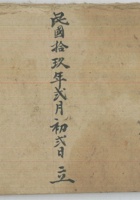 民國拾玖年弍月初弍日立